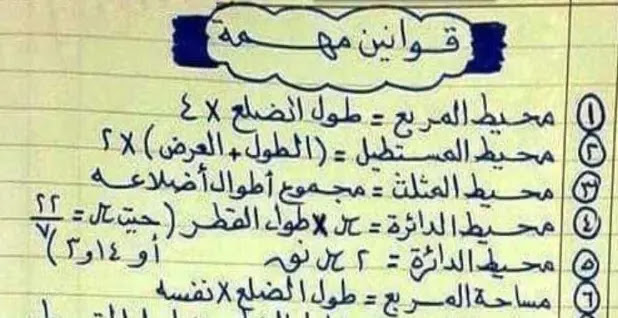 قوانين مهمة
① محيط المربع = طول الضلع × ٤
② محيط المستطيل = (الطول + العرض) × ٢
③ محيط المثلث = مجموع أطوال أضلاعه
④ محيط الدائرة = π × طول القطر (حيث π = ٢٢/٧
⑤ محيط الدائرة = ٢ π نق أو ١٤و٣)
⑥ مساحة المربع = طول الضلع × نفسه